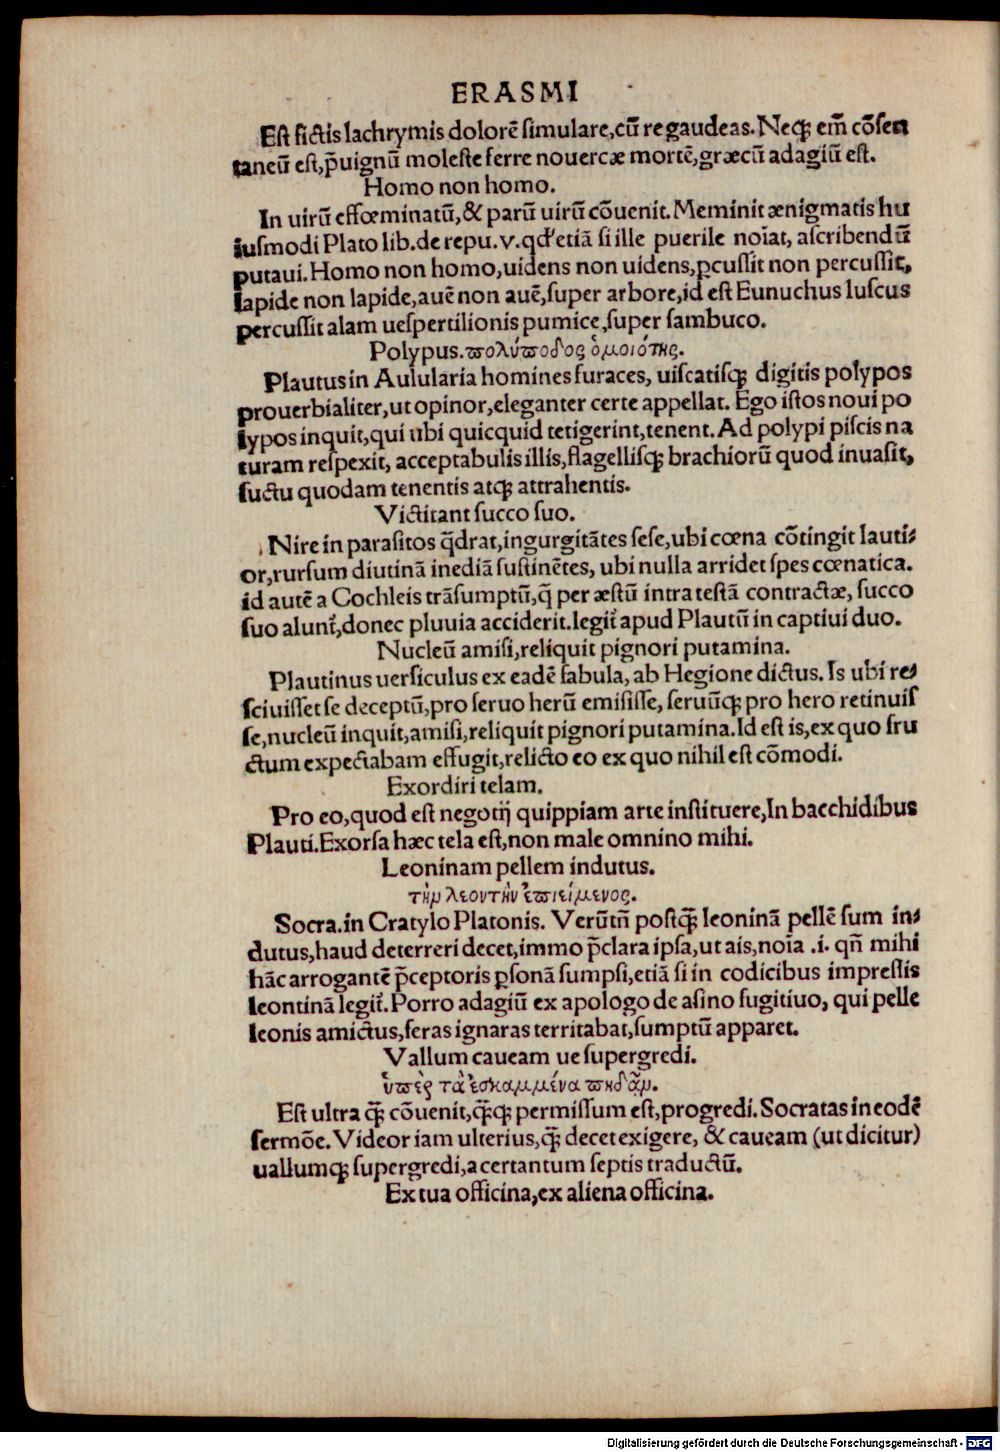 ERASMI
Est fictis lachrymis dolorē simulare,cū re gaudeas. Neqꝫ em̄ cōsen
taneū est,p̄uignū moleste ferre nouercæ mortē,græcū adagiū est.
Homo non homo.
In uirū effœminatū,& parū uirū cōuenit. Meminit ænigmatis hu
iusmodi Plato lib.de repu.v.qd' etiā si ille puerile noīat, ascribendū
putaui. Homo non homo,uidens non uidens,ꝑcussit non percussit,
lapide non lapide,auē non auē,super arbore,id est Eunuchus luscus
percussit alam uespertilionis pumice,super sambuco.
Polypus.πολύποδος ὁμοιότης.
Plautus in Aulularia homines furaces, uiscatisqꝫ digitis polypos
prouerbialiter,ut opinor,eleganter certe appellat. Ego istos noui po
lypos inquit,qui ubi quicquid tetigerint,tenent. Ad polypi piscis na
turam respexit, acceptabulis illis,flagellisqꝫ brachiorū quod inuasit,
suctu quodam tenentis atqꝫ attrahentis.
Victitant succo suo.
Nire in parasitos q̄drat,ingurgitātes sese,ubi cœna cōtingit lauti⸗
or,rursum diutinā inediā sustinētes, ubi nulla arridet spes cœnatica.
id autē a Cochleis trāsumptū,q̄ per æstū intra testā contractæ, succo
suo alunt᷑,donec pluuia acciderit.legit᷑ apud Plautū in captiui duo.
Nucleū amisi,reliquit pignori putamina.
Plautinus uersiculus ex eadē fabula, ab Hegione dictus. Is ubi re⸗
sciuisset se deceptū,pro seruo herū emisisse, seruūqꝫ pro hero retinuis
se,nucleū inquit,amisi,reliquit pignori putamina. Id est is,ex quo fru
ctum expectabam effugit,relicto eo ex quo nihil est cōmodi.
Exordiri telam.
Pro eo,quod est negotij quippiam arte instituere,In bacchidibus
Plauti.Exorsa hæc tela est,non male omnino mihi.
Leoninam pellem indutus.
τὴν λεοντὴν ἐπιείμενος.
Socra.in Cratylo Platonis. Verūtn̄ postqꝫ̄ leoninā pellē sum in⸗
dutus,haud deterreri decet,immo p̄clara ipsa,ut ais,noīa .i. qn̄ mihi
hāc arrogantē p̄ceptoris ꝑsonā sumpsi,etiā si in codicibus impressis
leontinā legit᷑. Porro adagiū ex apologo de asino fugitiuo, qui pelle
leonis amictus,feras ignaras territabat,sumptū apparet.
Vallum caueam ue supergredi.
ὑπὲρ τὰ ἐσκαμμένα πηδᾶν.
Est ultra qꝫ̄ cōuenit,qꝫ̄qꝫ permissum est,progredi. Socratas in eodē
sermōe. Videor iam ulterius,qꝫ̄ decet exigere, & caueam (ut dicitur)
uallumqꝫ supergredi,a certantum septis traductū.
Ex tua officina,ex aliena officina.
Digitalisierung gefördert durch die Deutsche Forschungsgemeinschaft - DFG